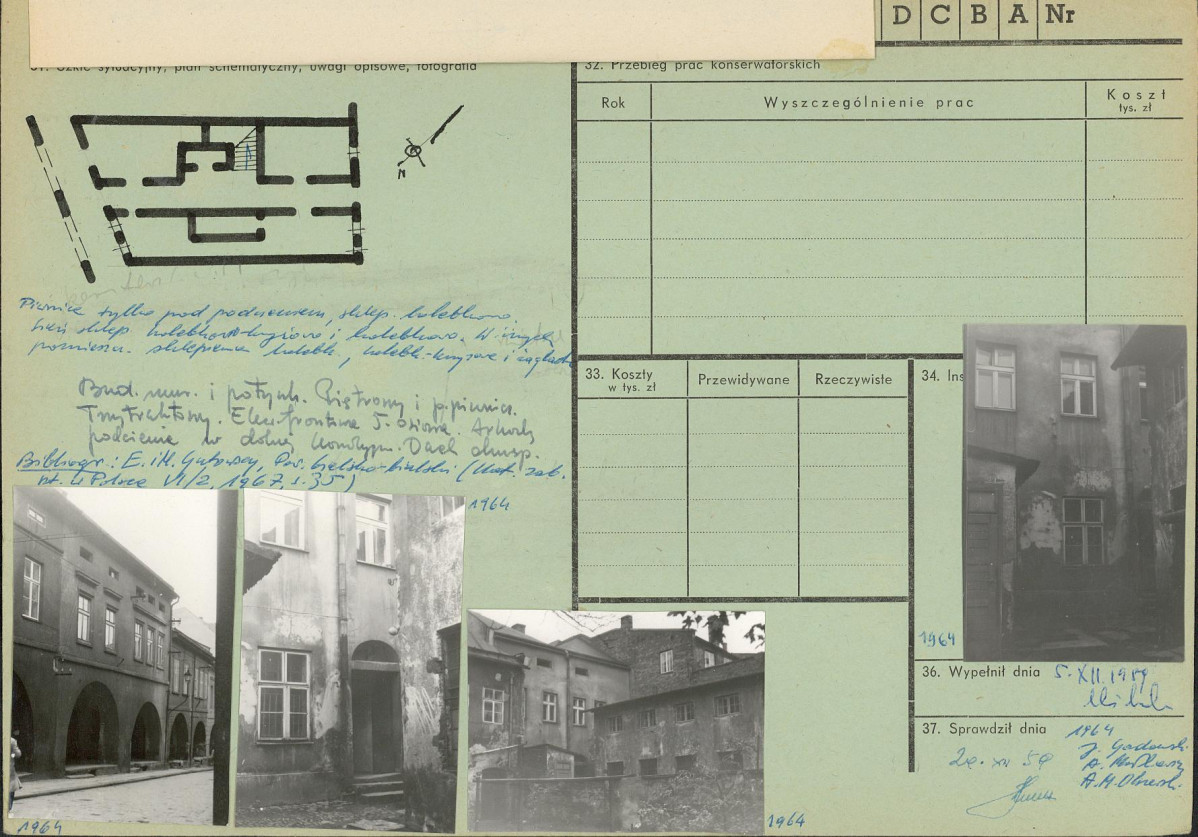 D C B A Nr
31. Szkic sytuacyjny, plan schematyczny, uwagi opisowe, fotografia
N
Piwnice tylko pod podcieniem, sklep. kolebkowo.
Sień sklep. kolebkowo-krzyżowo i kolebkowo. W innych
pomieszcz. sklepienia kolebk., kolebk.-krzyżowe i żaglaste
Bud. mur. i potynk. Piętrowy i p. piwnica.
Trzytraktowy. Elew. frontowa 5-osiowa. Arkady
podcienia w dolnej kondygn. Dach dwusp.
Bibliogr.: E. i M. Gutowscy, Pow. bielsko-bialski (Kat. zab.
szt. w Polsce VI/2, 1967, s. 35)
1964
1964
1964
32. Przebieg prac konserwatorskich
Rok
Wyszczególnienie prac
Koszt
tys. zł
33. Koszty
w tys. zł
Przewidywane
Rzeczywiste
34. Ins
1964
36. Wypełnił dnia 5.XII.1959
37. Sprawdził dnia 1964
29. XII 59